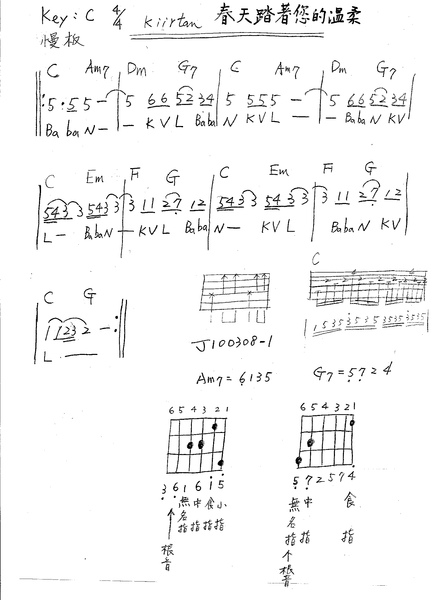 Key: C 4/4 Kiirtan 春天踏著您的溫柔
慢板
C Am7 Dm G7 C Am7 Dm G7
5 · 5 5 — 5 6 6 5 2 3 4 5 5 5 5 — 5 6 6 5 2 3 4
Ba ba N — — K V L Baba N K V L Baba — K V L Baba N K V
C Em F G C Em F G
5 4 3 3 5 4 3 3 3 1 1 2 7 1 2 5 4 3 3 5 4 3 3 3 1 1 2 7 1 2
L — BabaN — K V L BabaN — K V L BabaN K V
C G C
1 1 2 3 2 — :
L —
1 5 3 5 3 5 3 5 3 5 3 5 3 5 3 5
J100308-1
Am7 = 6 1 3 5 G7 = 5 7 2 4
6 5 4 3 2 1 6 5 4 3 2 1
3 6 1 6 1 5 5 7 2 5 7 4
無名指 中指 食指 小指 無名指 中指 食指
根音 根音